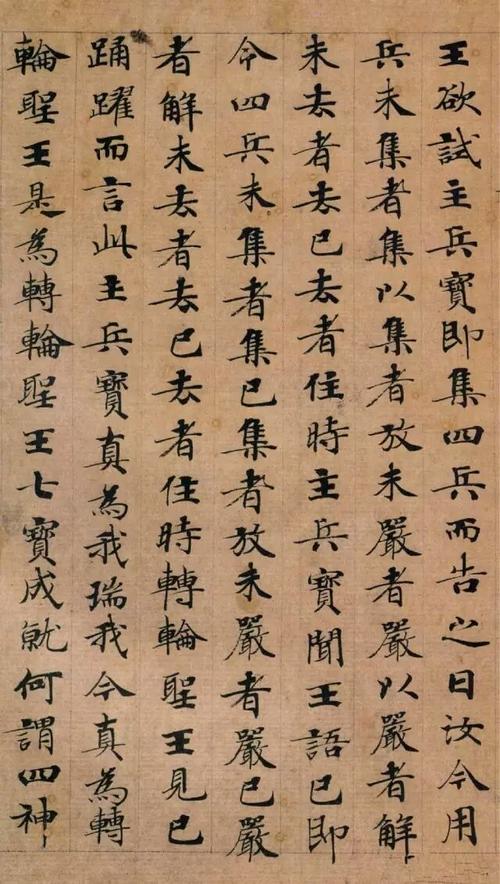 王欲試主兵寶即集四兵而告之曰汝今用
兵未集者集以集者放未嚴者嚴以嚴者解
未去者去已去者住時主兵寶聞王語已即
令四兵未集者集已集者放未嚴者嚴已嚴
者解未去者去已去者住時轉輪聖王見已
踊躍而言此主兵寶真為我瑞我今真為轉
輪聖王是為轉輪聖王七寶成就何謂四神